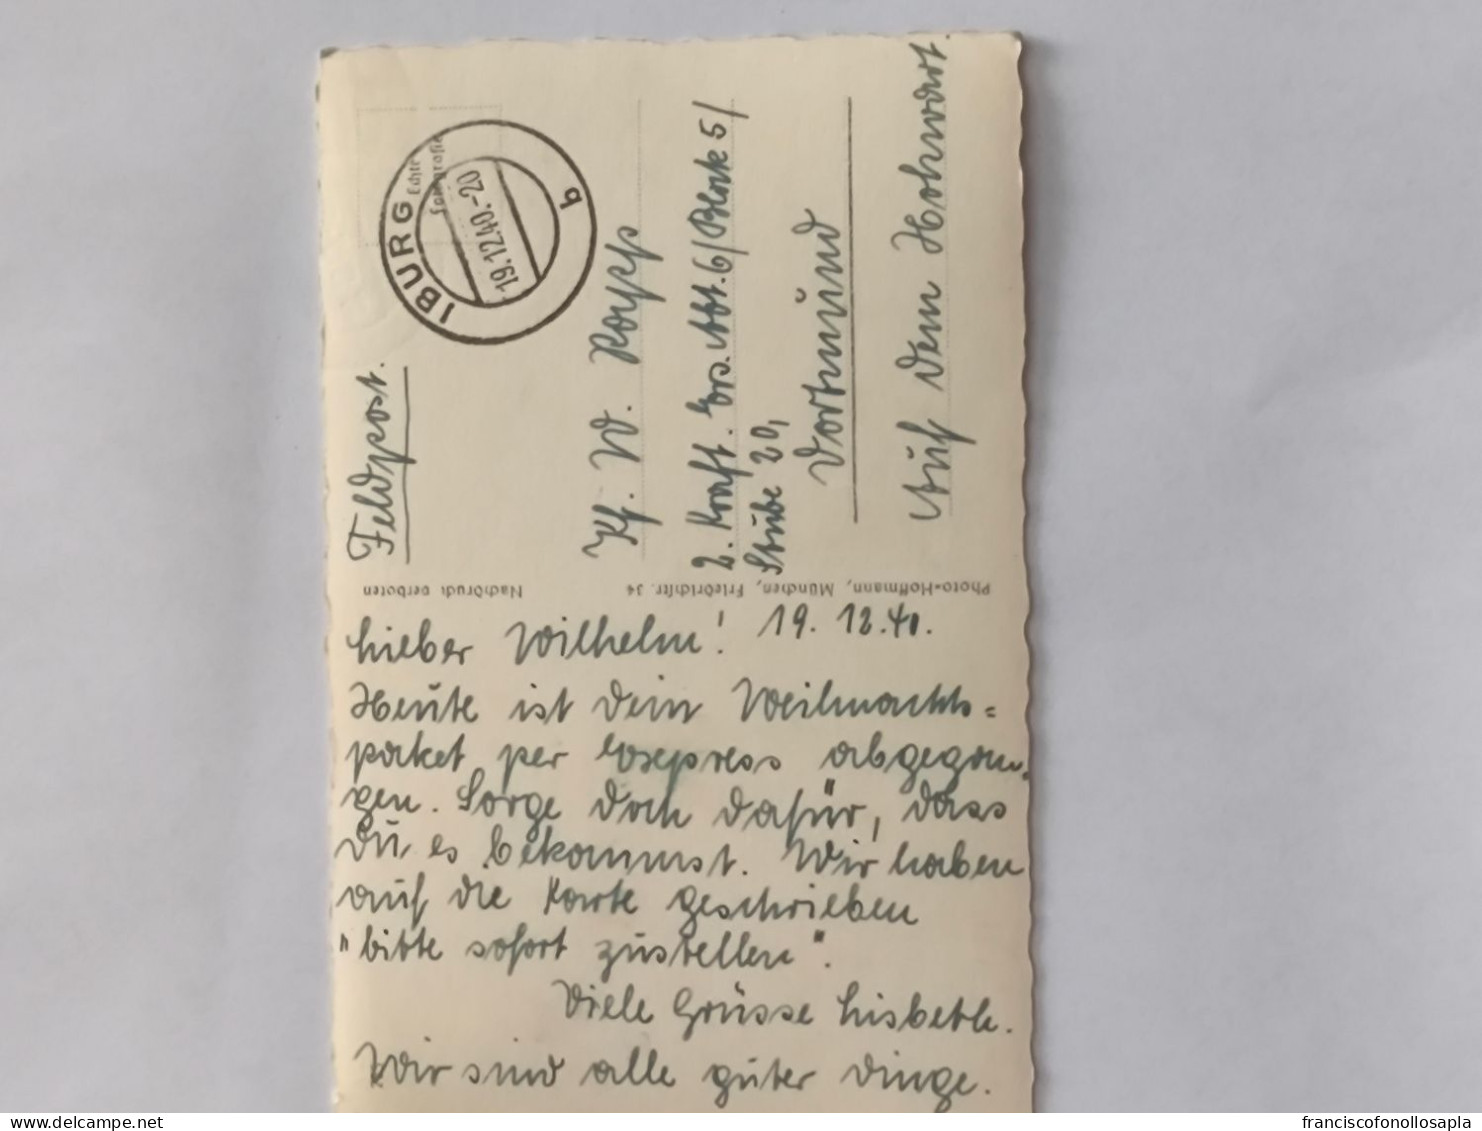 Feldpost.
IBURG
19.12.40.-20
b
Echte
Kf. W. Kopp
2. Kraft. Ers. Abt. 6/Block 5/
Stube 20,
Dortmund
Auf dem Hohwart.
Photo-Hoffmann, München, Friedrichstr. 34
Nachdruck verboten
Lieber Wilhelm! 19. 12. 40.
Heute ist dein Weihnachts=
paket per Express abgegan-
gen. Sorge doch dafür, dass
du es bekommst. Wir haben
auf die Karte geschrieben
"bitte sofort zustellen".
Viele Grüsse Lisbeth.
Wir sind alle guter Dinge.
delcampe.net
franciscofonollosapla